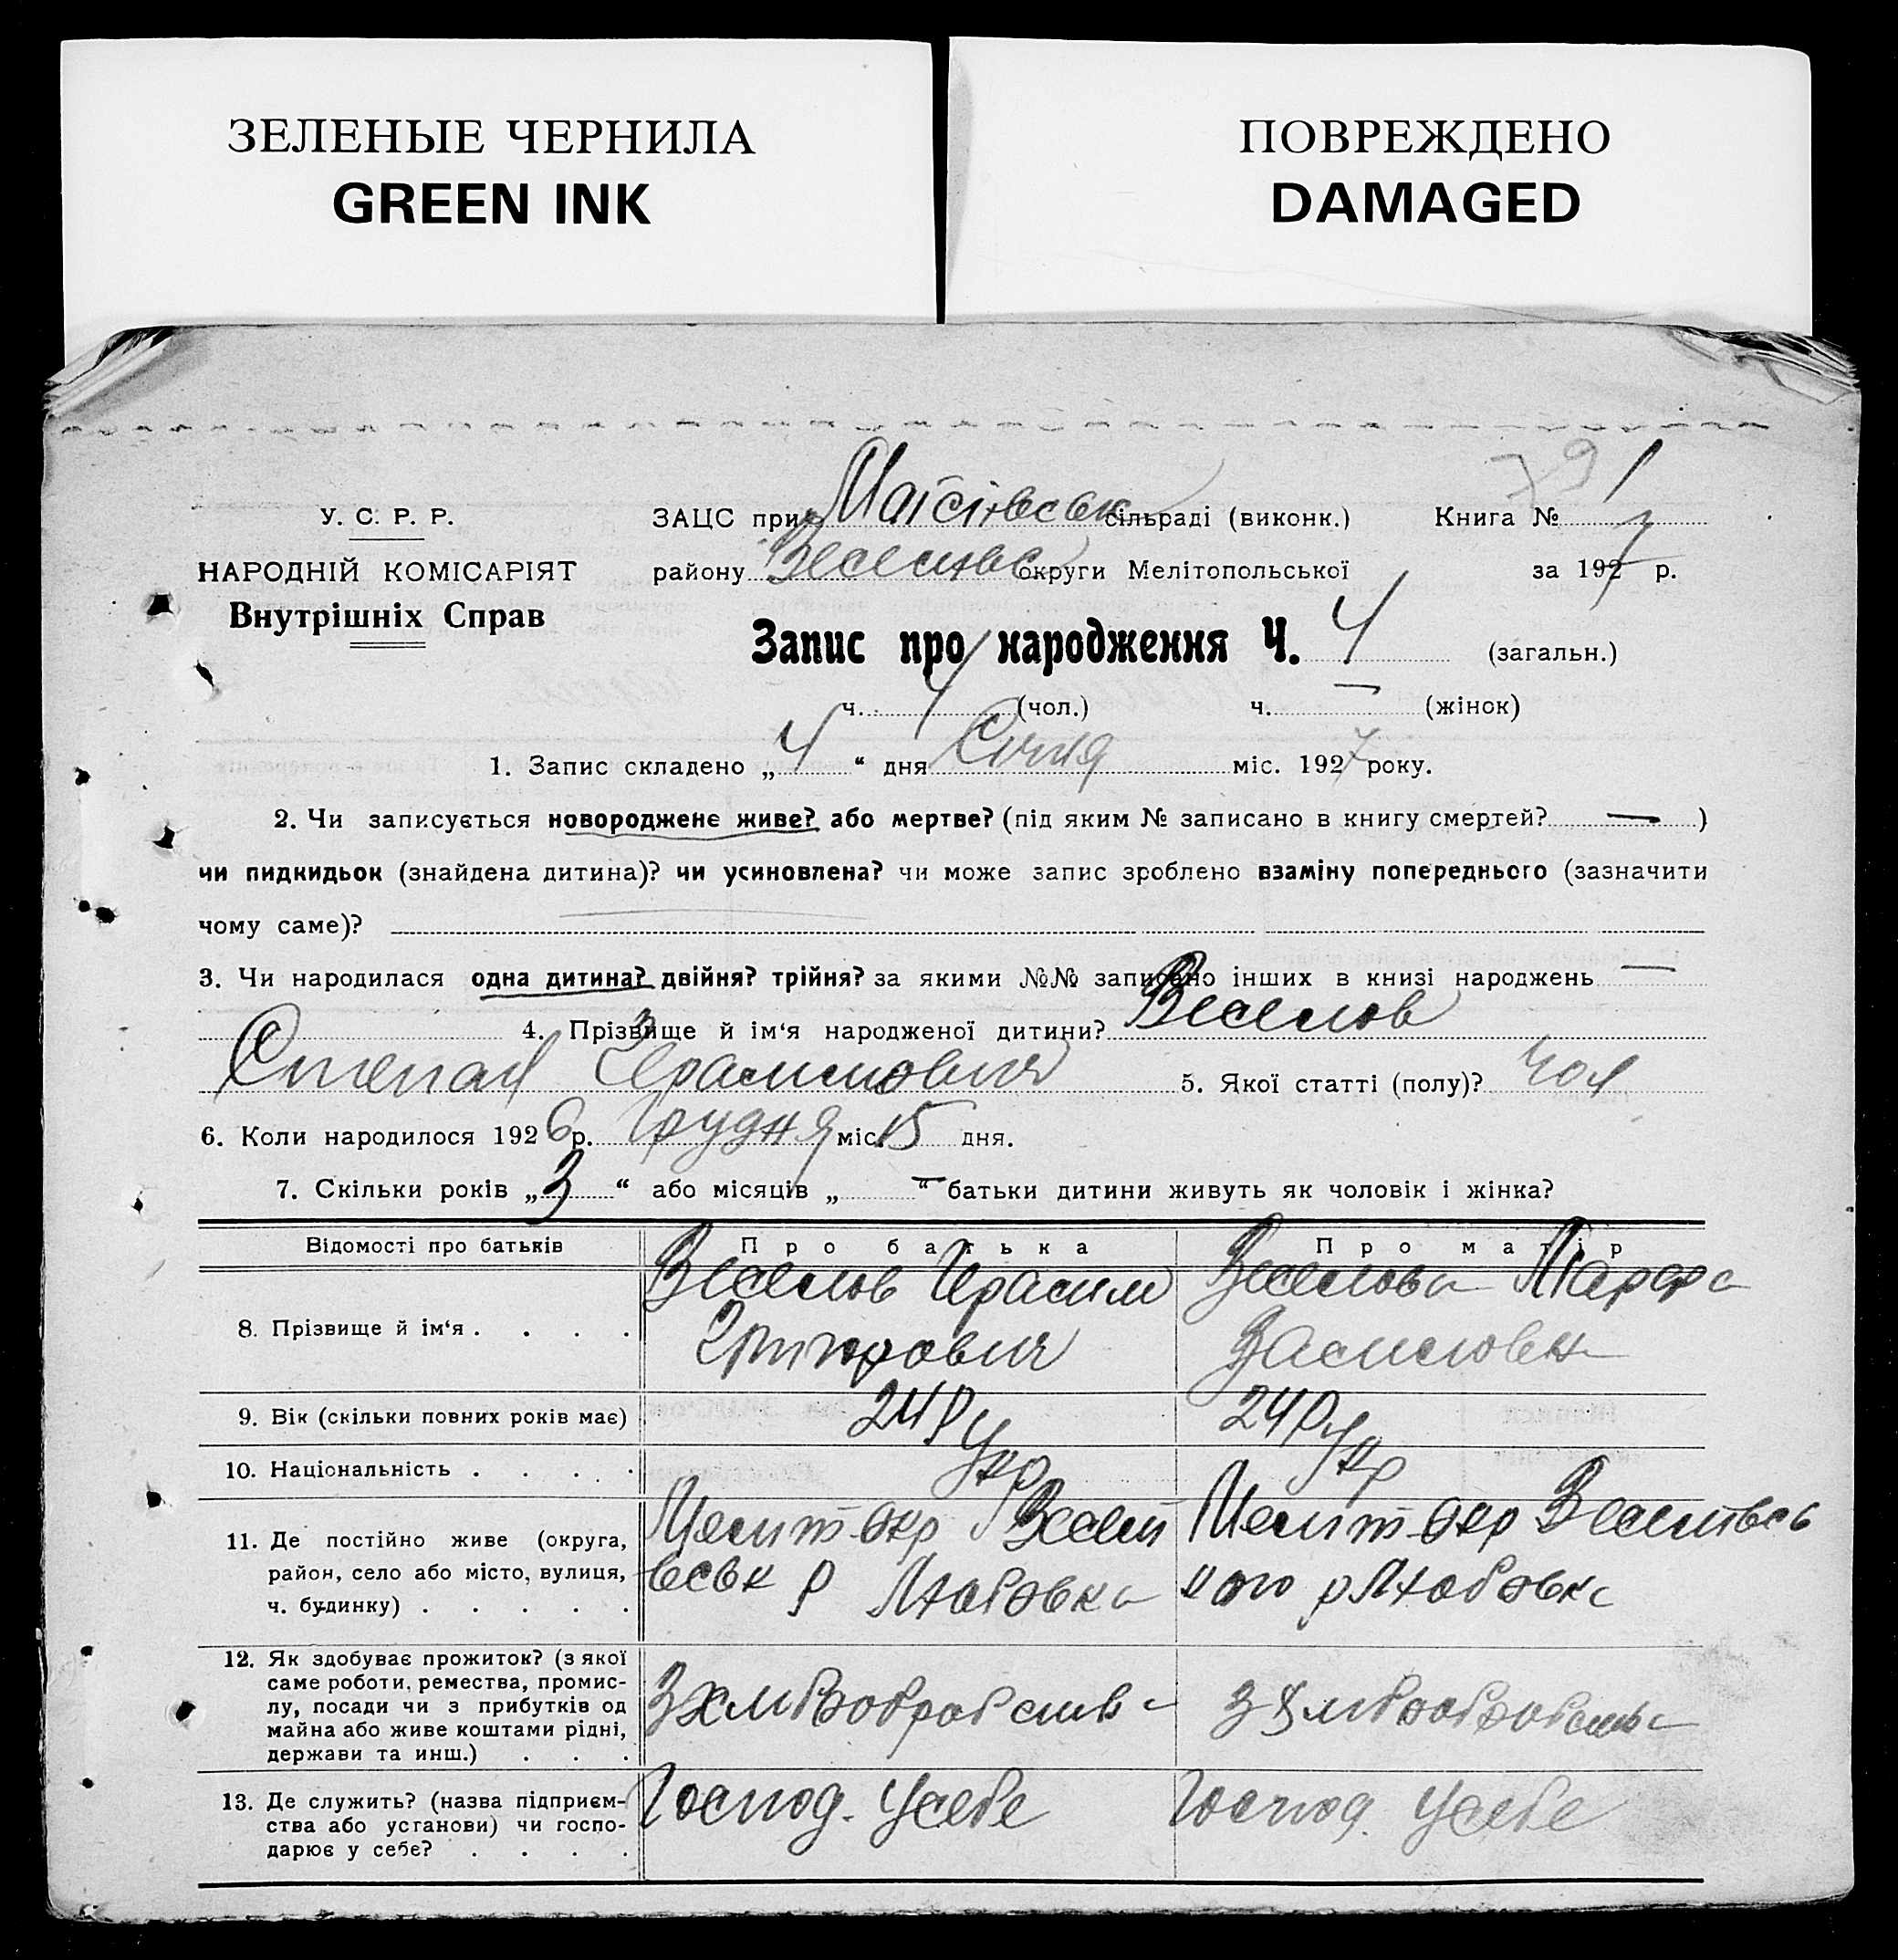 ЗЕЛЕНЫЕ ЧЕРНИЛА
GREEN INK
ПОВРЕЖДЕНО
DAMAGED
79 1
У. С. Р. Р.
НАРОДНІЙ КОМІСАРІЯТ
Внутрішніх Справ
ЗАЦС при сільраді (виконк.) Книга №
району округи Мелітопольської за 1927 р.
Запис про народження Ч. 4 (загальн.)
ч. 4 (чол.) ч. — (жінок)
1. Запис складено „ 4 “ дня Січня міс. 1927 року.
2. Чи записується новороджене живе? або мертве? (під яким № записано в книгу смертей? — )
чи пидкидьок (знайдена дитина)? чи усиновлена? чи може запис зроблено взаміну попереднього (зазначити
чому саме)?
3. Чи народилася одна дитина? двійня? трійня? за якими №№ записано інших в книзі народжень —
4. Прізвище й ім‘я народженої дитини? Веселов
Степан Герасимович 5. Якої статті (полу)? чол
6. Коли народилося 1926 р. Грудня міс. 15 дня.
7. Скільки років „ 3 “ або місяців „ — “ батьки дитини живуть як чоловік і жінка?
Відомості про батьків Про батька Про матір
8. Прізвище й ім‘я . . . . Веселов Герасим Веселова Марфа
Григорович Василовна
9. Вік (скільки повних років має) 24 р 24 р
10. Національність . . . . Укр Укр
11. Де постійно живе (округа, Меліт окр Весели Меліт окр Веселівсь
район, село або місто, вулиця, вськ р кого р
ч. будинку) . . . . .
12. Як здобуває прожиток? (з якої
саме роботи, ремества, промис-
лу, посади чи з прибутків од
майна або живе коштами рідні,
держави та инш.) . . .
З хліборобства З хліборобства
13. Де служить? (назва підприєм- Господ. у себе Господ. у себе
ства або установи) чи госпо-
дарює у себе? . . . .